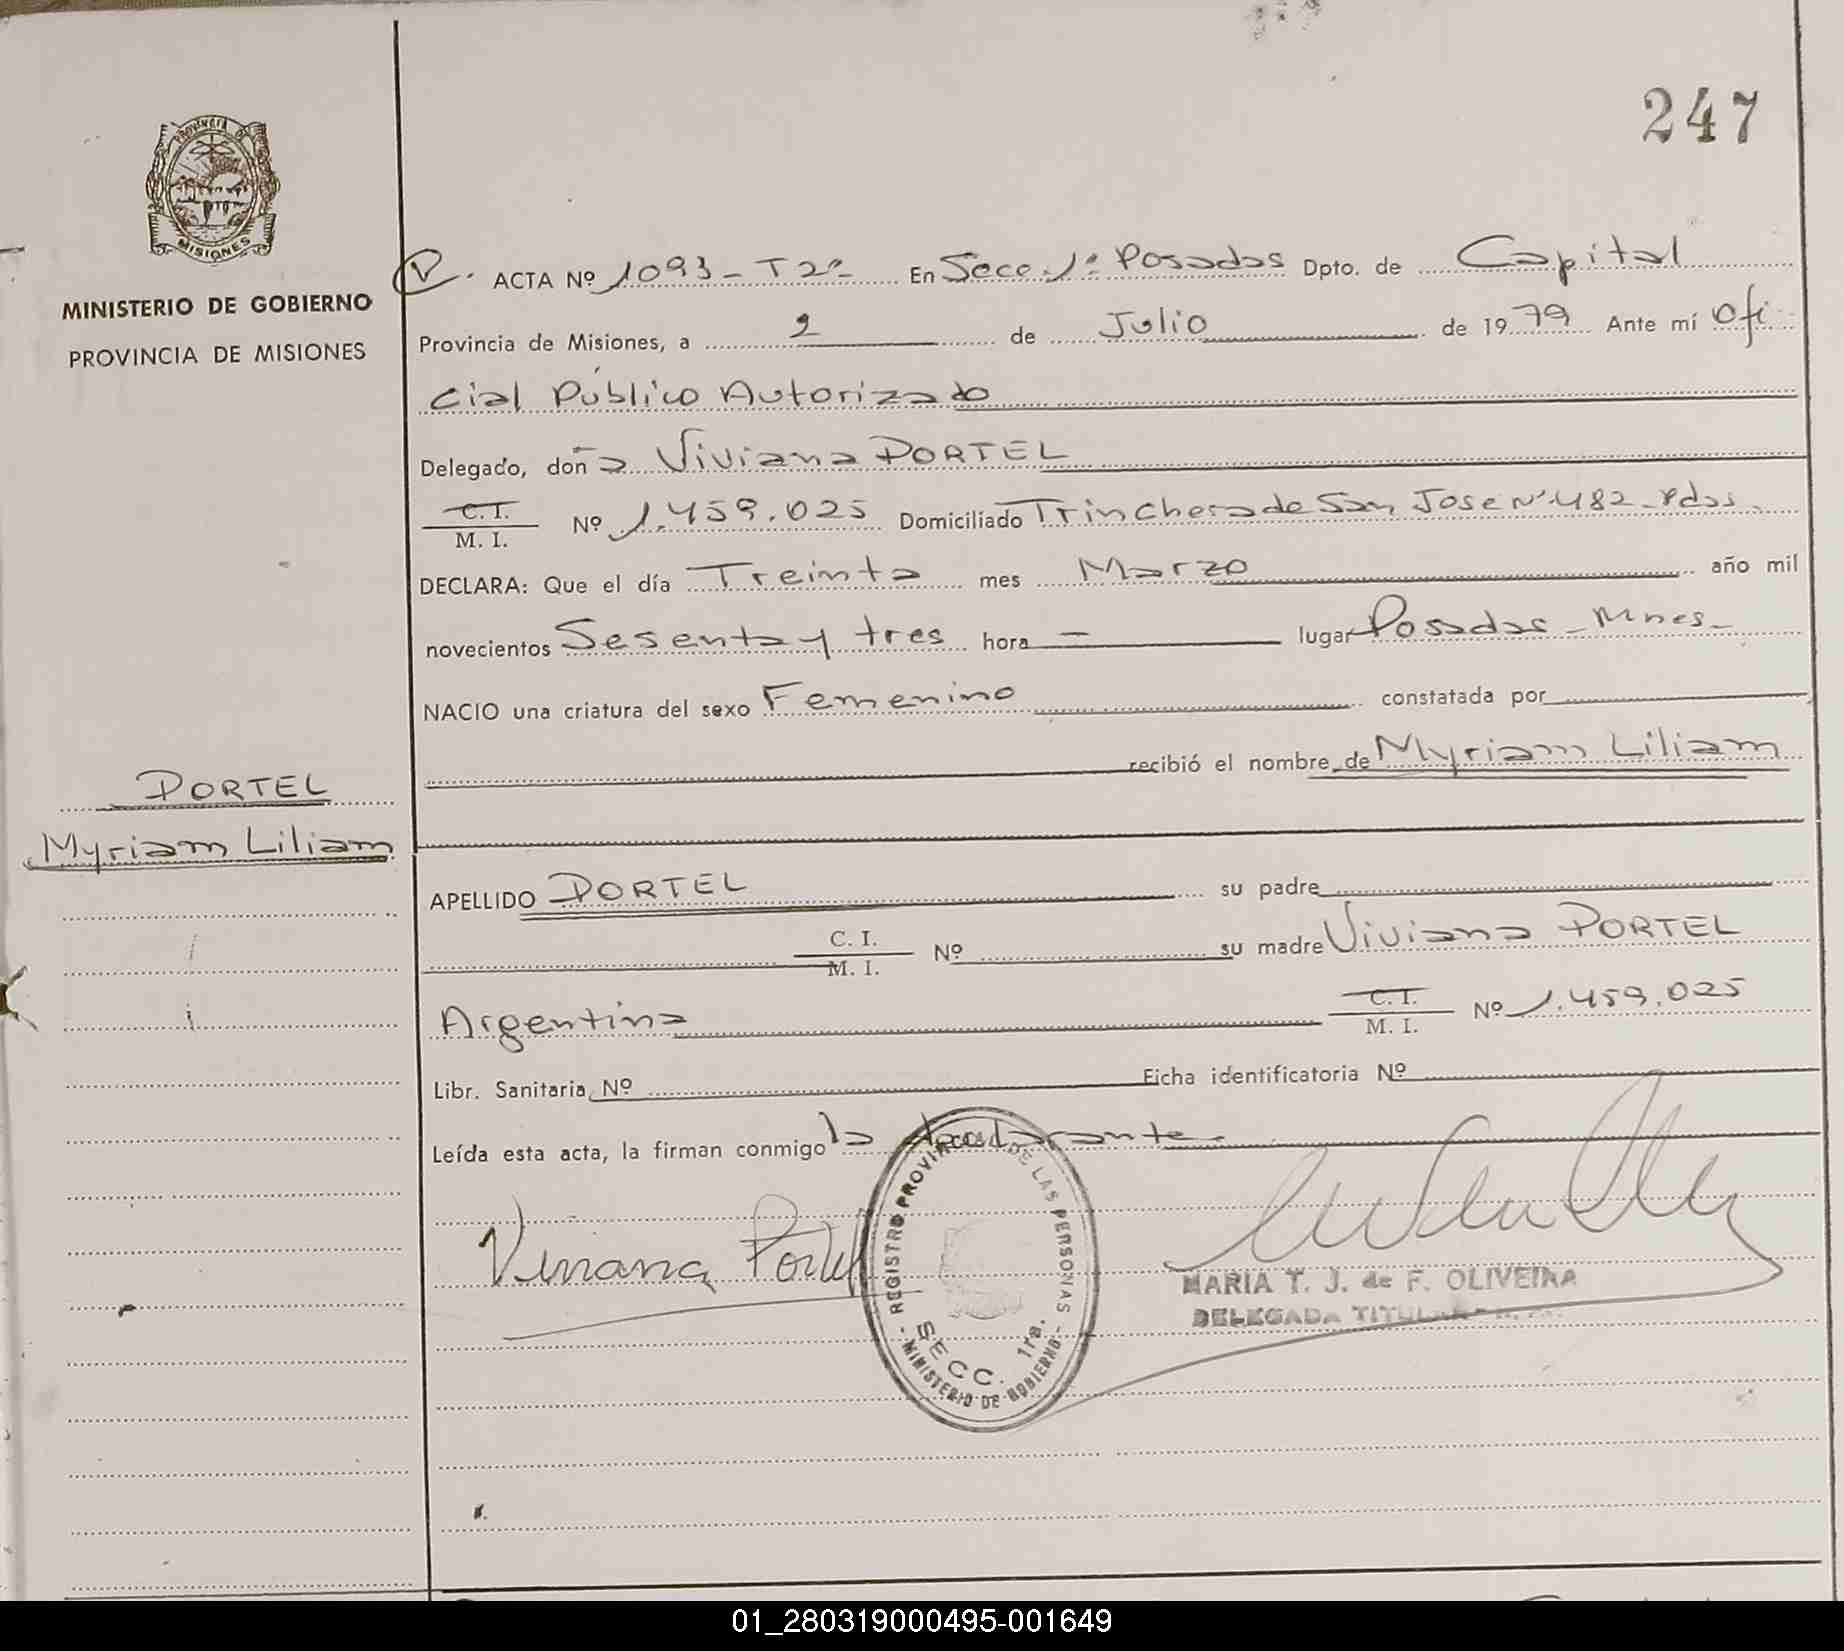 247
PROVINCIA DE
MISIONES
MINISTERIO DE GOBIERNO
PROVINCIA DE MISIONES
V. ACTA Nº 1093 - T2º En Secc. 1º Posadas Dpto. de Capital
Provincia de Misiones, a 2 de Julio de 1979 Ante mí Ofi
cial Público Autorizado
Delegado, doña Viviana PORTEL
C. I.
M. I. Nº 1.459.025 Domiciliado Trinchera de San Jose Nº 482 - Pdas.
DECLARA: Que el día Treinta mes Marzo año mil
novecientos Sesenta y tres hora — lugar Posadas - Mnes -
NACIO una criatura del sexo Femenino constatada por
recibió el nombre de Myriam Liliam
PORTEL
Myriam Liliam
APELLIDO PORTEL su padre
C. I.
M. I. Nº su madre Viviana PORTEL
Argentina C. I.
M. I. Nº 1.459.025
Libr. Sanitaria Nº Ficha identificatoria Nº
Leída esta acta, la firman conmigo la declarante.
Viviana Portel
REGISTRO PROVINCIAL DE LAS PERSONAS
SECC. 1ra.
- MINISTERIO DE GOBIERNO -
MARIA T. J. de F. OLIVEIRA
DELEGADA TITULAR
01_280319000495-001649